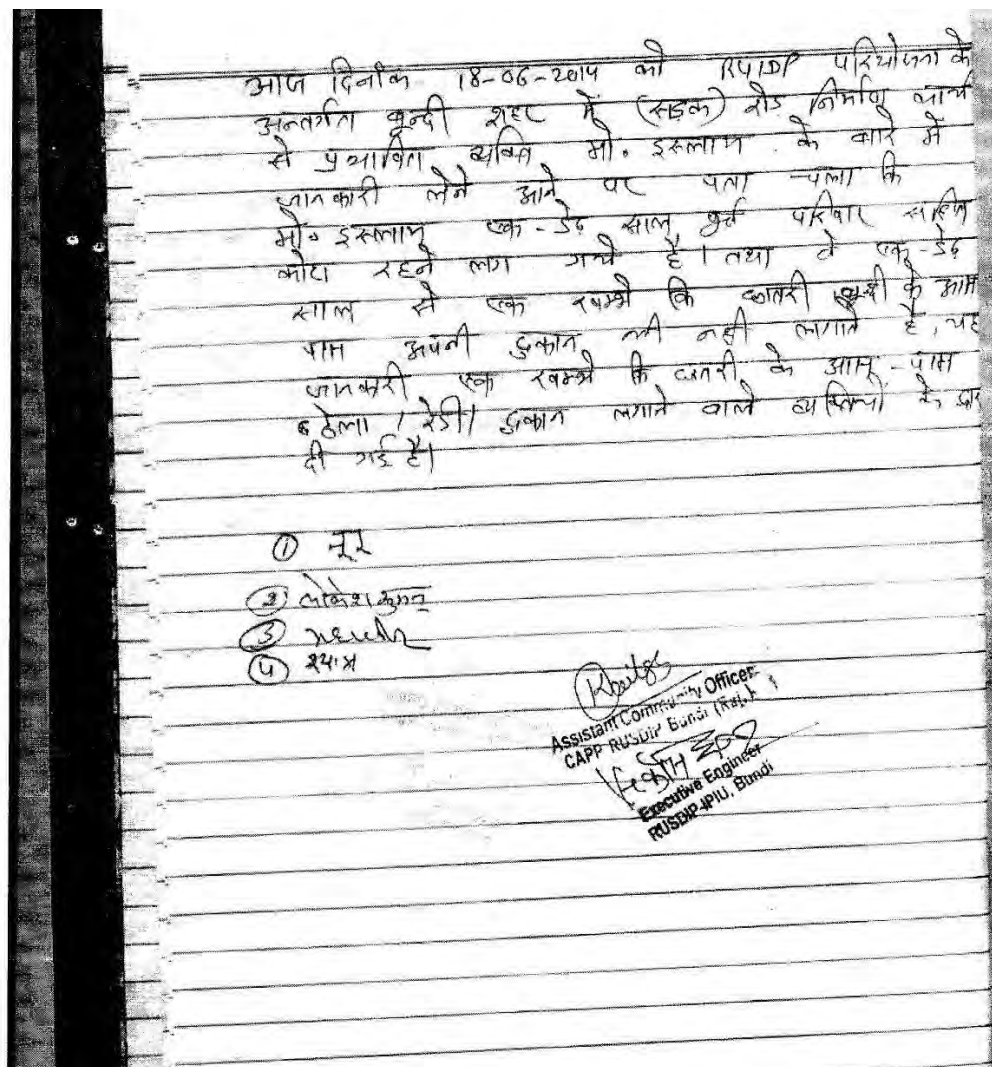 आज दिनांक 18-06-2014 को RUIDP परियोजना के
अन्तर्गता बून्दी शहर में (सड़क) रोड़ निर्माण कार्य
से प्रभावित व्यक्ति मो. इस्लाम के बारे में
जानकारी लेने आने पर पता चला कि
मो. इस्लाम एक-डेढ़ साल पूर्व परिवार सहित
कोटा रहने लग गये है। तथा वे एक-डेढ़
साल से एक खम्भे कि छतरी के आस
पास अपनी दुकान भी नही लगाते है, यह
जानकारी एक खम्भे कि छतरी के आस-पास
ठेला / रेडी / दुकान लगाने वाले व्यक्तियों के द्वारा
दी गई है।
① नूर
② लोकेश कुमार
③
④ श्याम
Assistant Community Officer
CAPP RUSDIP Bundi (Raj.)
Executive Engineer
RUSDIP-IPIU, Bundi